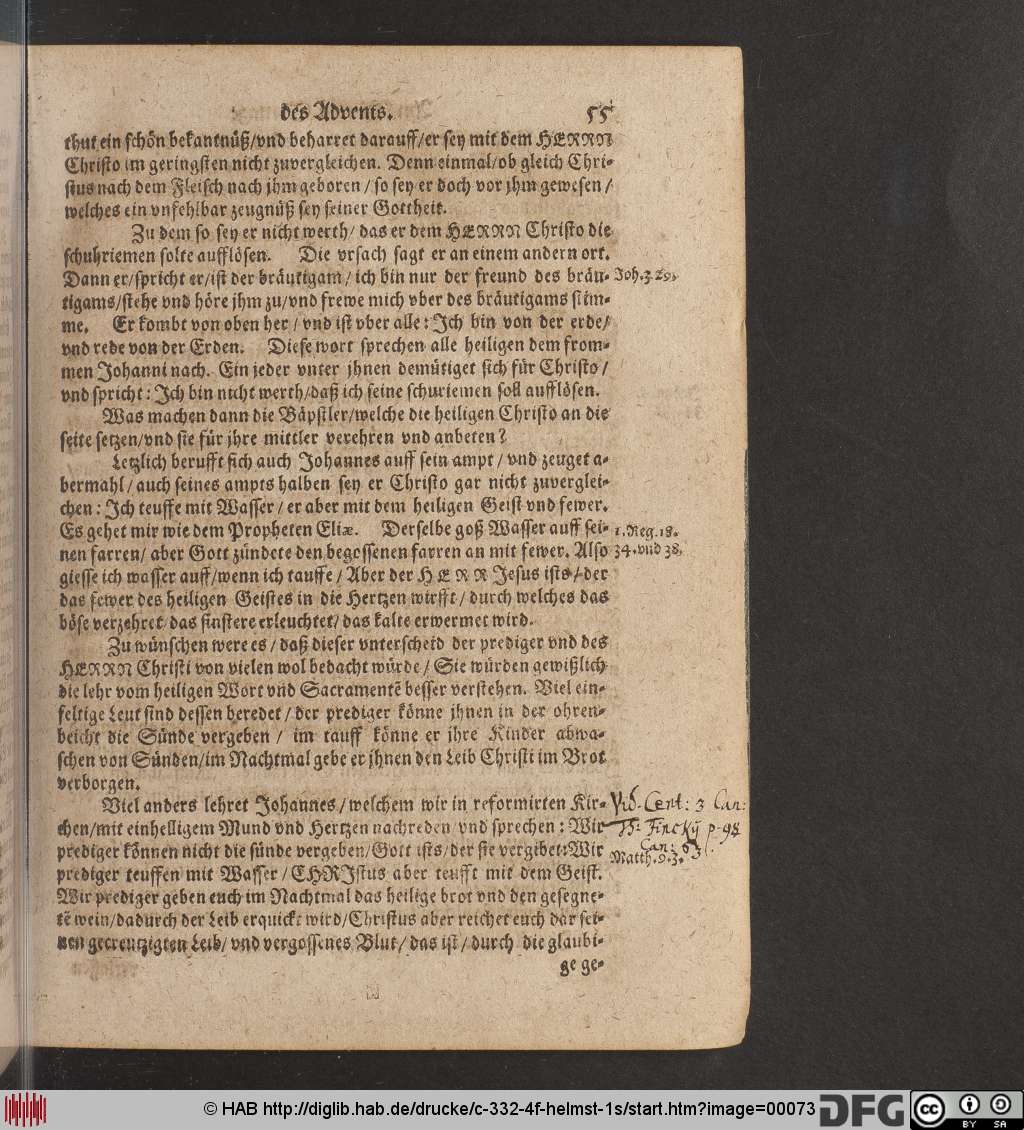 des Advents. 55
thut ein schön bekantnüß/vnd beharret darauff/er sey mit dem HERRN
Christo im geringsten nicht zuvergleichen. Denn einmal/ob gleich Chri-
stus nach dem Fleisch nach jhm geboren/so sey er doch vor jhm gewesen/
welches ein vnfehlbar zeugnüß sey seiner Gottheit.
Zu dem so sey er nicht werth/das er dem HERRN Christo die
schuhriemen solte aufflösen. Die vrsach sagt er an einem andern ort.
Dann er/spricht er/ist der bräutigam/ich bin nur der freund des bräu-
Joh.3.29.
tigams/stehe vnd höre jhm zu/vnd frewe mich vber des bräutigams stim-
me. Er kombt von oben her/vnd ist vber alle: Ich bin von der erde/
vnd rede von der Erden. Diese wort sprechen alle heiligen dem from-
men Johanni nach. Ein jeder vnter jhnen demütiget sich für Christo/
vnd spricht: Ich bin nicht werth/daß ich seine schuriemen soll aufflösen.
Was machen dann die Bäpstler/welche die heiligen Christo an die
seite setzen/vnd sie für jhre mittler verehren vnd anbeten?
Letzlich berufft sich auch Johannes auff sein ampt/vnd zeuget a-
bermahl/auch seines ampts halben sey er Christo gar nicht zuverglei-
chen: Ich teuffe mit Wasser/er aber mit dem heiligen Geist vnd fewer.
Es gehet mir wie dem Propheten Eliæ. Derselbe goß Wasser auff sei-
1.Reg.18.
nen farren/aber Gott zündete den begossenen farren an mit fewer. Also
34.vnd 38.
giesse ich wasser auff/wenn ich tauffe/Aber der HERR Jesus ists/der
das fewer des heiligen Geistes in die Hertzen wirfft/durch welches das
böse verzehret/das finstere erleuchtet/das kalte erwermet wird.
Zu wünschen were es/daß dieser vnterscheid der prediger vnd des
HERRN Christi von vielen wol bedacht würde/Sie würden gewißlich
die lehr vom heiligen Wort vnd Sacramentē besser verstehen. Viel ein-
feltige Leut sind dessen beredet/der prediger könne jhnen in der ohren-
beicht die Sünde vergeben/im tauff könne er jhre Kinder abwa-
schen von Sünden/im Nachtmal gebe er jhnen den Leib Christi im Brot
verborgen.
Viel anders lehret Johannes/welchem wir in reformirten Kir-
Vid. Cent: 3 Can:
chen/mit einhelligem Mund vnd Hertzen nachreden vnd sprechen: Wir
Th: Finckÿ p. 98
prediger können nicht die sünde vergeben/Gott ists/der sie vergibet:Wir
Can: 63
Matth.9.3.
prediger teuffen mit Wasser/CHRIstus aber teufft mit dem Geist.
Wir prediger geben euch im Nachtmal das heilige brot vnd den gesegne-
tē wein/dadurch der Leib erquickt wird/Christus aber reichet euch dar sei-
nen gecreutzigten Leib/vnd vergossenes Blut/das ist/durch die glaubi-
ge ge-
© HAB http://diglib.hab.de/drucke/c-332-4f-helmst-1s/start.htm?image=00073
DFG
cc BY SA